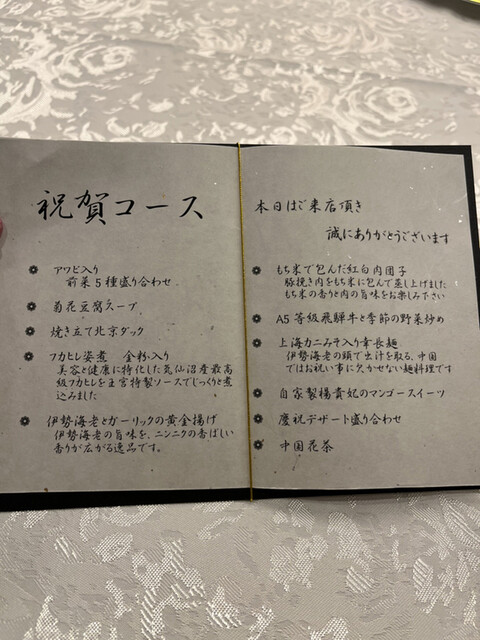 祝賀コース
アワビ入り
前菜5種盛り合わせ
菊花豆腐スープ
焼き立て北京ダック
フカヒレ姿煮 金粉入り
美容と健康に特化した気仙沼産最高
級フカヒレを王宮特製ソースでじっくりと煮
込みました
伊勢海老とガーリックの黄金揚げ
伊勢海老の旨味を、ニンニクの香ばしい
香りが広がる逸品です。
本日はご来店頂き
誠にありがとうございます
もち米で包んだ紅白肉団子
豚挽き肉をもち米に包んで蒸し上げました
もち米の香りと肉の旨味をお楽しみ下さい
A5等級飛騨牛と季節の野菜炒め
上海カニみそ入り幸衣麺
伊勢海老の頭で出汁を取る、中国
ではお祝い事に欠かせない麺料理です
自家製楊貴妃のマンゴースイーツ
慶祝デザート盛り合わせ
中国花茶